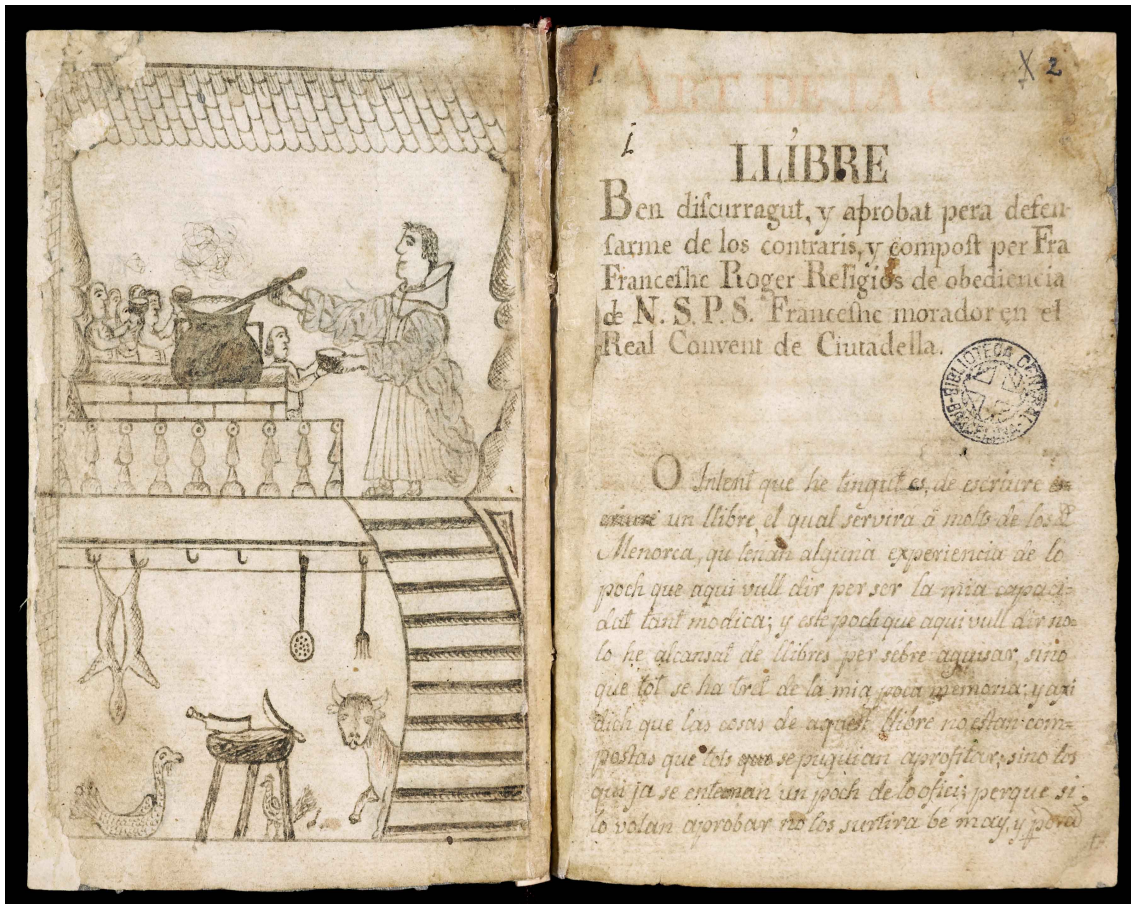 X 2
ART DE LA
1
LLIBRE
Ben discurragut, y aprobat pera defen-
sarme de los contraris, y compost per Fra
Franceshc Roger Religiós de obediencia
de N. S. P. S. Franceshc morador en el
Real Convent de Ciutadella.
BIBLIOTECA CENTRAL
BARCELONA
O Intent que he tingut es, de escriure es-
criure un llibre el qual servira á molts de los de
Menorca, qu tenan alguna experiencia de lo
poch que aqui vull dir per ser la mia capaci-
dat tant modica; y este poch que aqui vull dir no
lo he alcansat de llibris per sebre aguisar, sino
que tot se ha tret de la mia poca memoria; y axi
dich que las cosas de aquest llibre no estan com-
postas que tots que se puguian aprofitar, sino los
qui ja se entenan un poch de lo ofici; perque si
lo volan aprobar no los surtira be may, y pera